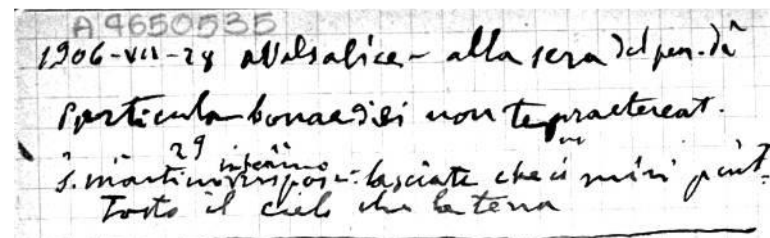 A 9650535
1906-VII-28 a Valsalice - alla sera del pen. dì
Particula bonae diei non te praetereat.
29 infermo
S. Martino rispose: lasciate che io miri piut-
tosto il cielo che la terra